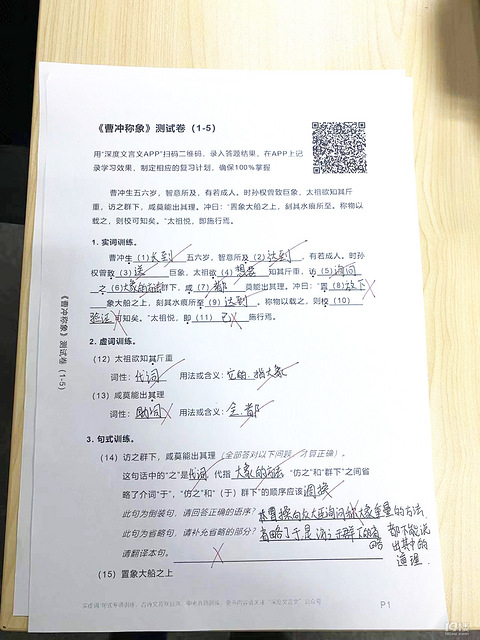 《曹冲称象》测试卷（1-5）
用“深度文言文APP”扫码二维码，录入答题结果，在APP上记
录学习效果，制定相应的复习计划，确保100%掌握
曹冲生五六岁，智意所及，有若成人。时孙权曾致巨象，太祖欲知其斤
重，访之群下，咸莫能出其理。冲曰：“置象大船之上，刻其水痕所至。称物以
载之，则校可知矣。”太祖悦，即施行焉。
1. 实词训练。
曹冲生 (1)达到 五六岁，智意所及 (2)达到 ，有若成人。时孙
权曾致 (3)送 巨象，太祖欲 (4)想要 知其斤重，访 (5)询问
之 (6)大象的方法 群下，咸 (7)都 莫能出其理。冲曰：“置 (8)放下
象大船之上，刻其水痕所至 (9)达到 。称物以载之，则校 (10)
验证 可知矣。”太祖悦，即 (11) 施行焉。
2. 虚词训练。
(12) 太祖欲知其斤重
词性：代词 用法或含义：它的，指大象
(13) 咸莫能出其理
词性：助词 用法或含义：全，都
3. 句式训练。
(14) 访之群下，咸莫能出其理（全部答对以下问题，才算正确）。
这句话中的“之”是代词 代指 大象的方法 “仿之”和“群下”之间省
略了介词“于”，“仿之”和“（于）群下”的顺序应该调换
此句为倒装句，请回答正确的语序？ 曹操向众大臣询问称大象重量的方法
此句为省略句，请补充省略的部分？ 省略了于，是访之于群下的省略 都不能说出其中的道理.
请翻译本句。
(15) 置象大船之上
《曹冲称象》测试卷（1-5）
P1